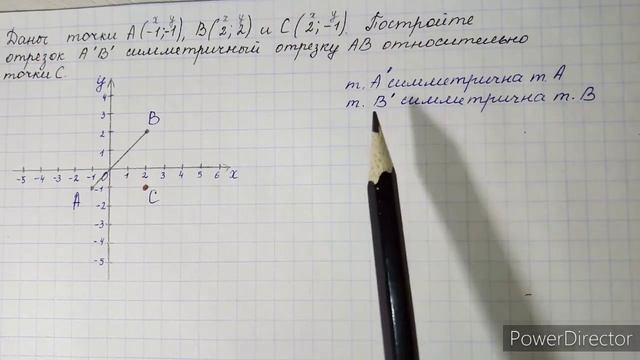 Даны точки A(-1;-1), B(2;2) и C(2;-1). Постройте
отрезок A'B' симметричный отрезку AB относительно
точки C.
т. A' симметрична т. A
т. B' симметрична т. B
y
4
3
2
1
B
-5 -4 -3 -2 -1 0 1 2 3 4 5 6 x
A
-1
C
-2
-3
-4
-5
PowerDirector